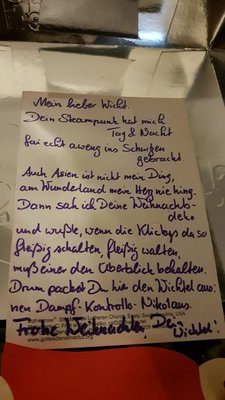 Mein lieber Wicht.
Dein Steampunk hat mich
Tag & Nacht
fai echt aweng ins Schwitzen
gebracht.
Auch Asien ist nicht mein Ding,
am Wunderland mein Herz nie hing.
Dann sah ich Deine Weihnachts-
deko
und wußte, wenn die Klickys da so
fleißig schalten, fleißig walten,
muß einer den Überblick behalten.
Drum packst Du hier den Wichtel aus:
nen Dampf-Kontrollo-Nikolaus.
Frohe Weihnachten, Dei
Wichtel!
Lutheran Church,
USA
www.gottesdienstinstitut.org